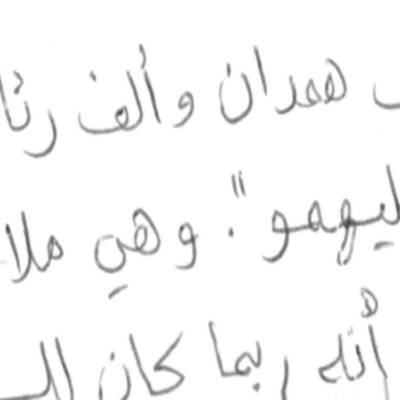 همدان وألف رثا
ليهمو". وهي ملا
أنه ربما كان